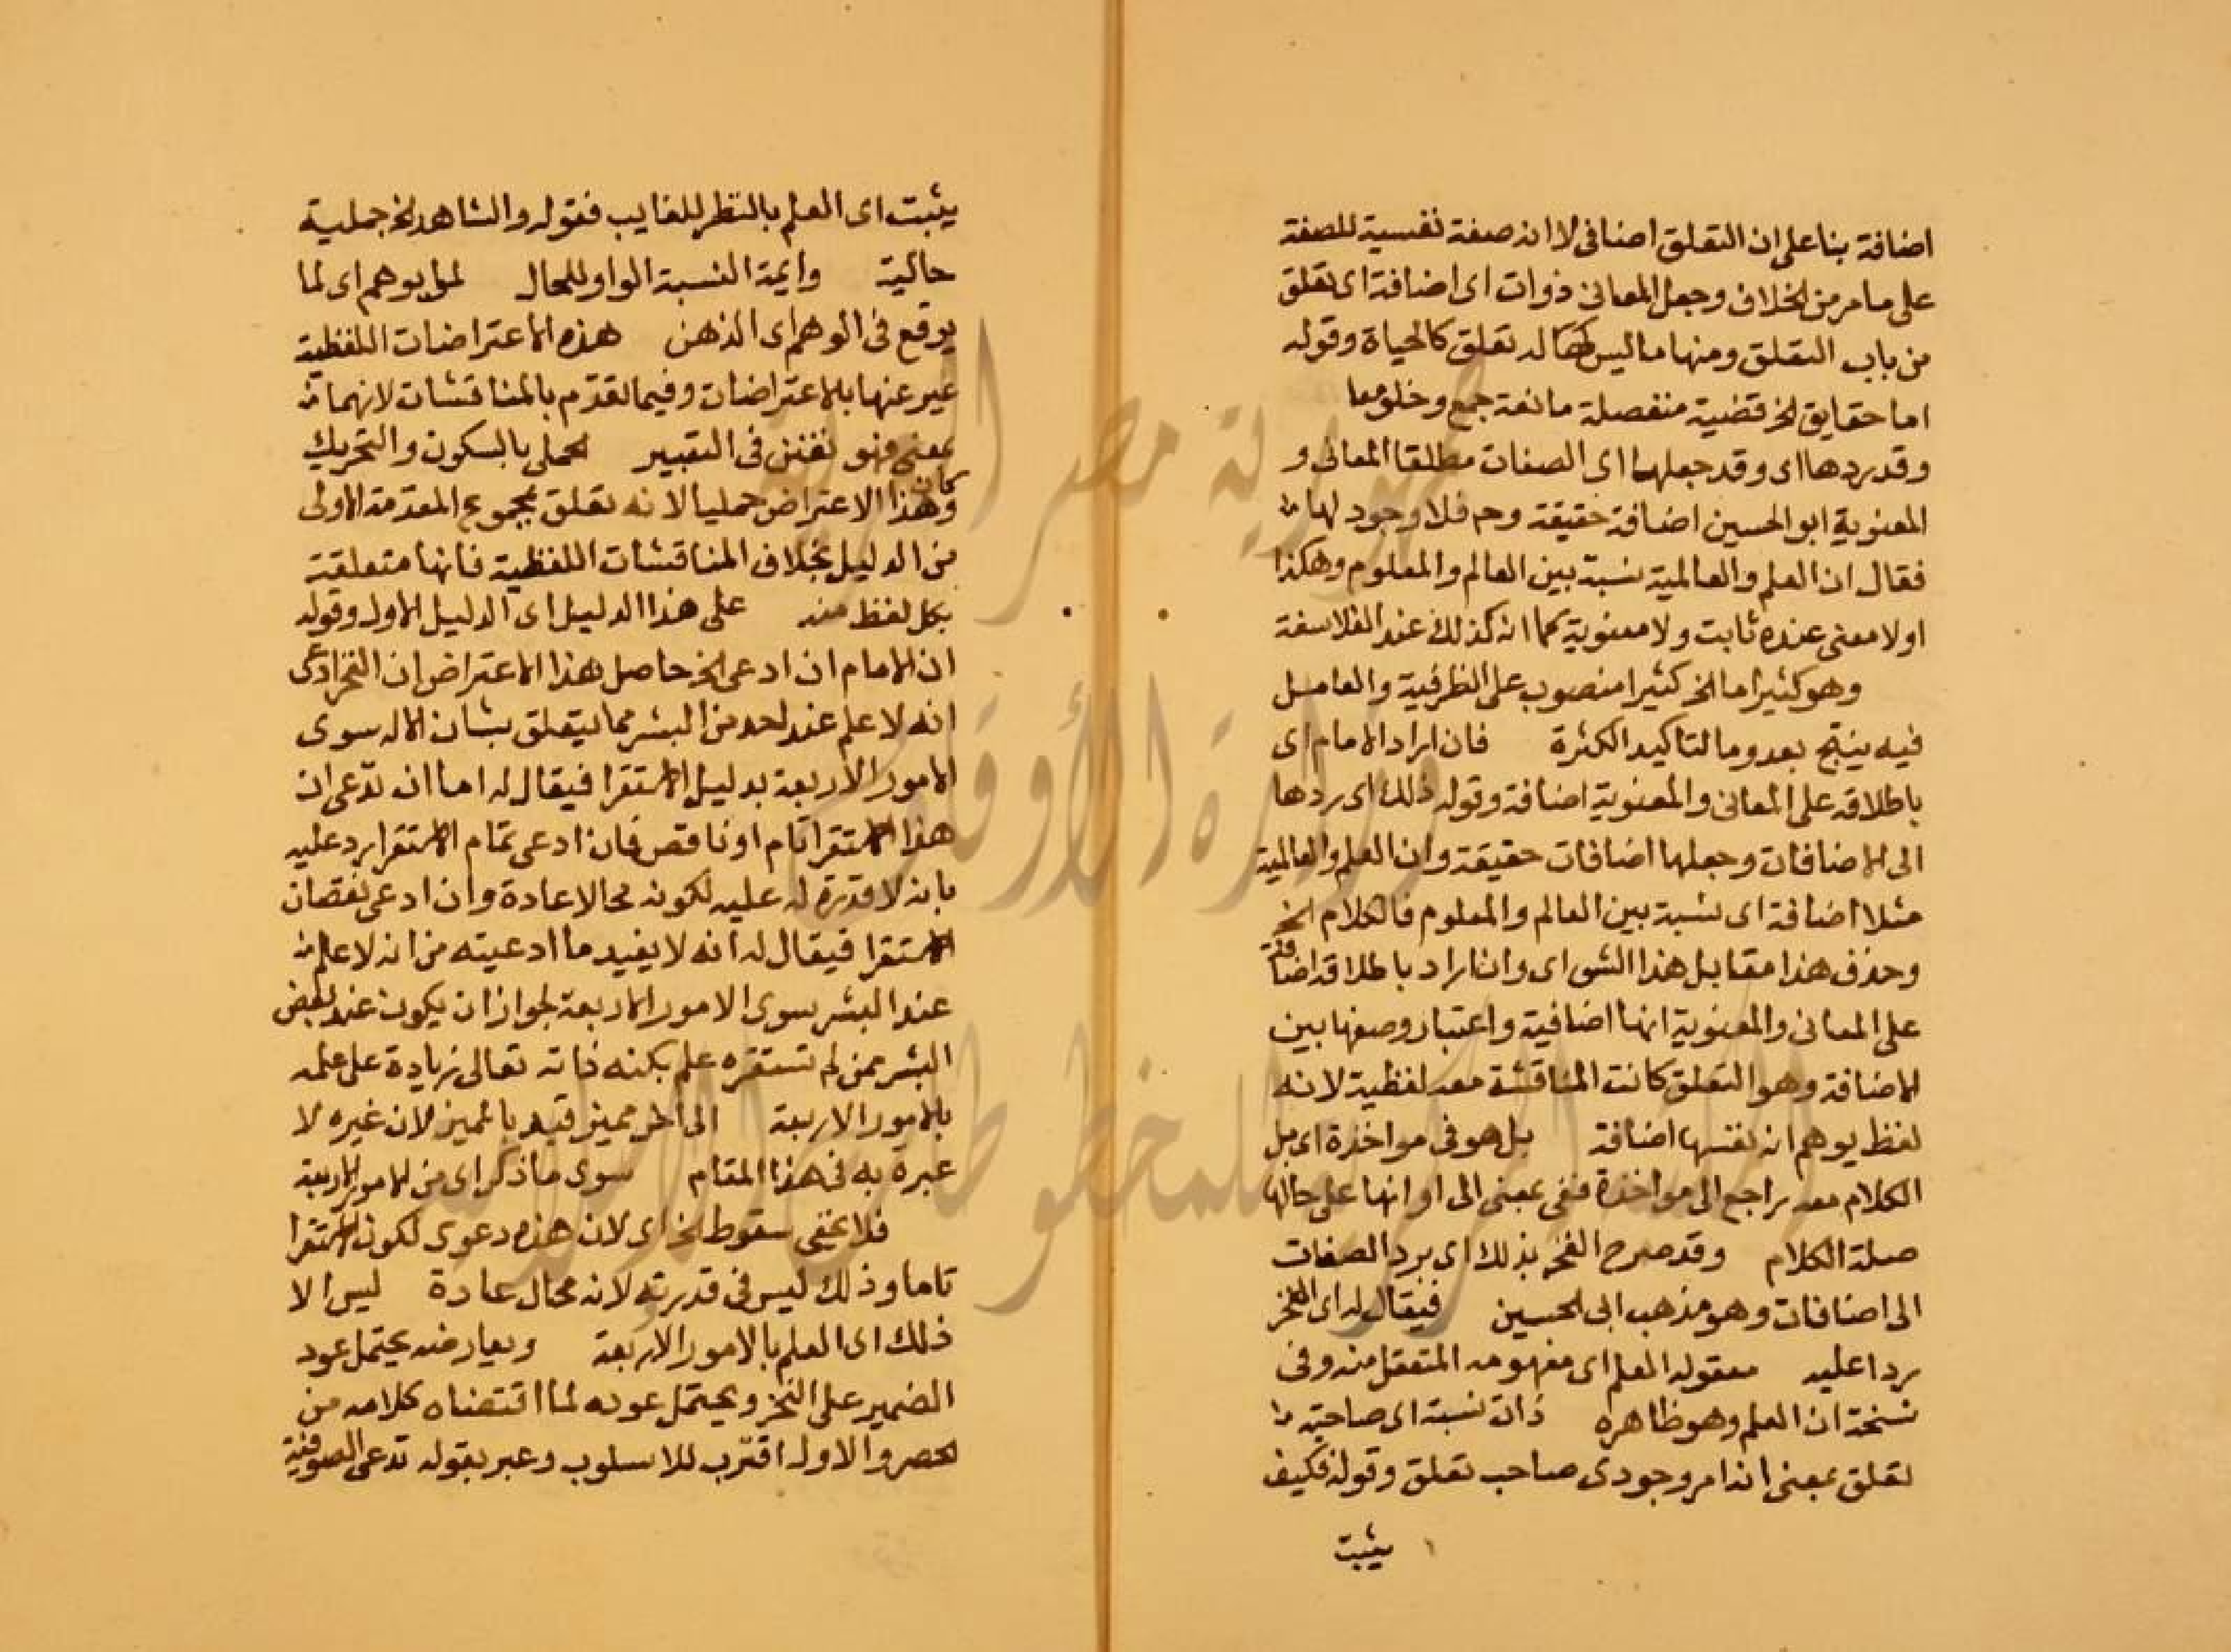 اضافة بنا على ان التعلق اضافى لا انه صفة نفسية للصفة
على ما مر من الخلاف وجعل المعانى ذوات اى اضافة اى تعلق
من باب التعلق ومنها ما ليس له تعلق كالحياة وقوله
اما حقايق الخ قضية منفصلة مانعة جمع وخلو معا
وقد يردها اى وقد جعلها اى الصفات مطلقا المعانى و
المعنوية ابو الحسين اضافة حقيقة وح فلا وجود لها
فقال ان العلم والعالمية نسبة بين العالم والمعلوم وهكذا
اولا معنى عنده ثابت ولا معنوية كما انه كذلك عند الفلاسفة
وهو كثيرا ما الخ كثيرا منصوب على الظرفية والعامل
فيه ينتج بعد وما لتاكيد الكثرة فان اراد الامام اى
باطلاقه على المعانى والمعنوية اضافة وقوله ذلك اى ردها
الى الاضافات وجعلها اضافات حقيقة وان العلم والعالمية
مثلا اضافة اى نسبة بين العالم والمعلوم فالكلام الخ
وحذف هذا مقابل هذا الشق اى وان اراد باطلاقه اضافة
على المعانى والمعنوية انها اضافية واعتبار وصفها بين
الاضافة وهو التعلق كانت المناقشة معه لفظية لانه
لفظ يوهم انه نفسها اضافة بل هو فى مواخذة اى بل
الكلام معه راجع الى مواخذة ففى بمعنى الى او انها على حالها
صلة الكلام وقد صرح الفخر بذلك اى برد الصفات
الى اضافات وهو مذهب ابى الحسين فيقال له اى الفخر
ردا عليه معقوله العلم اى مفهومه المتعقل منه وفى
نسخة ان العلم وهو ظاهره ذات نسبة اى صاحبة
تعلق بمعنى انه امر وجودى صاحب تعلق وقوله فكيف
يثبت
يثبت اى العلم بالنظر للغايب فقوله والشاهد الخ جملية
حالية وايمة النسبة الواو للحال لما يوهم اى لما
يوقع فى الوهم اى الذهن هذه الاعتراضات اللفظية
عبر عنها بالاعتراضات وفيما تقدم بالمناقشات لانهما
بمعنى فهو تفنن فى التعبير الجملى بالسكون والتحريك
وكان هذا الاعتراض جمليا لانه تعلق بمجموع المقدمة الاولى
من الدليل بخلاف المناقشات اللفظية فانها متعلقة
بكل لفظ منه على هذا الدليل اى الدليل الاول وقوله
ان الامام ان ادعى الخ حاصل هذا الاعتراض ان الفخر ادعى
انه لا علم عند احد من البشر مما يتعلق بشان الاله سوى
الامور الاربعة بدليل الاستقرا فيقال له اما ان تدعى ان
هذا الاستقرا تام او ناقص فان ادعى تمام الاستقرا يرد عليه
بانه لا قدرة له عليه لكونه محالا عادة وان ادعى نقصان
الاستقرا فيقال له انه لا يفيد ما ادعيته من انه لا علم
عند البشر سوى الامور الاربعة لجواز ان يكون عند بعض
البشر ممن لم تستقره علم بكنه ذاته تعالى زيادة على علمه
بالامور الاربعة الى اخر مميز قيد بالمميز لان غيره لا
عبرة به فى هذا المقام سوى ما ذكر اى من الامور الاربعة
فلا يخفى سقوط الخ اى لان هذه دعوى لكون الاستقرا
تاما وذلك ليس فى قدرته لانه محال عادة ليس الا
ذلك اى العلم بالامور الاربعة ويعارضه يحتمل عود
الضمير على الفخر ويحتمل عوده لما اقتضاه كلامه من
الحصر والاول اقرب للاسلوب وعبر بقوله تدعى الصوفية